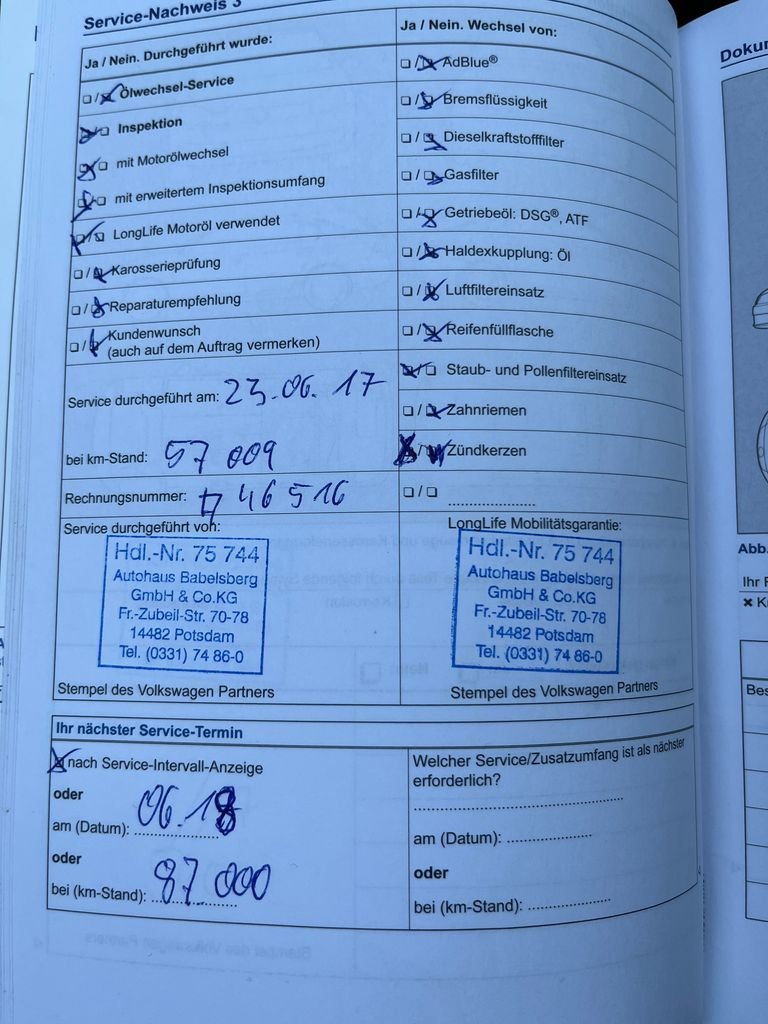 Service-Nachweis 3
Ja / Nein. Durchgeführt wurde:
Ölwechsel-Service
Inspektion
mit Motorölwechsel
mit erweitertem Inspektionsumfang
LongLife Motoröl verwendet
Karosserieprüfung
Reparaturempfehlung
Kundenwunsch
(auch auf dem Auftrag vermerken)
Service durchgeführt am: 23.06.17
bei km-Stand: 57 009
Rechnungsnummer: 46 516
Service durchgeführt von:
Hdl.-Nr. 75 744
Autohaus Babelsberg
GmbH & Co.KG
Fr.-Zubeil-Str. 70-78
14482 Potsdam
Tel. (0331) 74 86-0
Stempel des Volkswagen Partners
Ja / Nein. Wechsel von:
AdBlue®
Bremsflüssigkeit
Dieselkraftstofffilter
Gasfilter
Getriebeöl: DSG®, ATF
Haldexkupplung: Öl
Luftfiltereinsatz
Reifenfüllflasche
Staub- und Pollenfiltereinsatz
Zahnriemen
Zündkerzen
LongLife Mobilitätsgarantie:
Hdl.-Nr. 75 744
Autohaus Babelsberg
GmbH & Co.KG
Fr.-Zubeil-Str. 70-78
14482 Potsdam
Tel. (0331) 74 86-0
Stempel des Volkswagen Partners
Ihr nächster Service-Termin
nach Service-Intervall-Anzeige
oder
am (Datum): 06.18
oder
bei (km-Stand): 87.000
Welcher Service/Zusatzumfang ist als nächster
erforderlich?
am (Datum):
oder
bei (km-Stand):
Abb.